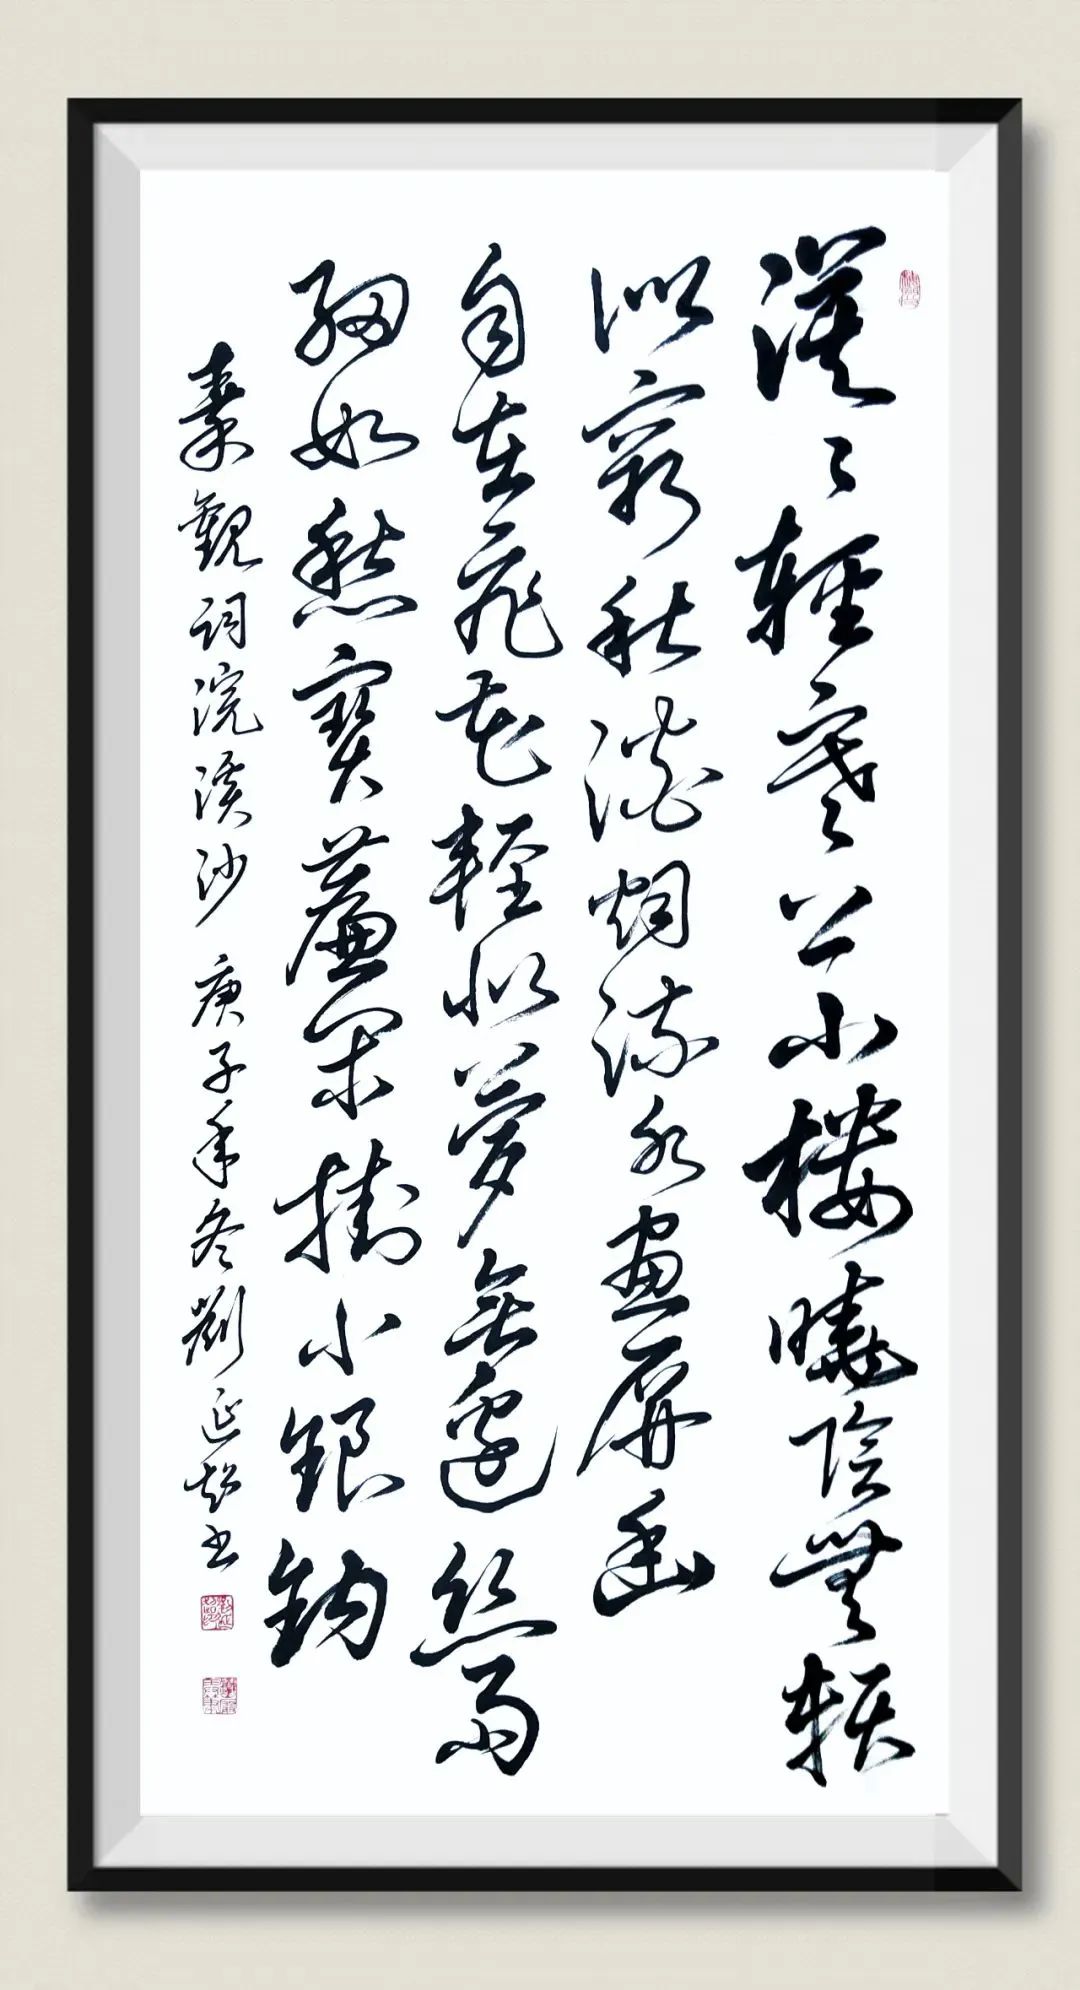 漠々輕寒上小樓曉陰無賴
似窮秋澹烟流水畫屏幽
自在飛花輕似夢無邊絲雨
細如愁寶簾閑掛小銀鈎
秦觀詞浣溪沙 庚子年冬劉延超书